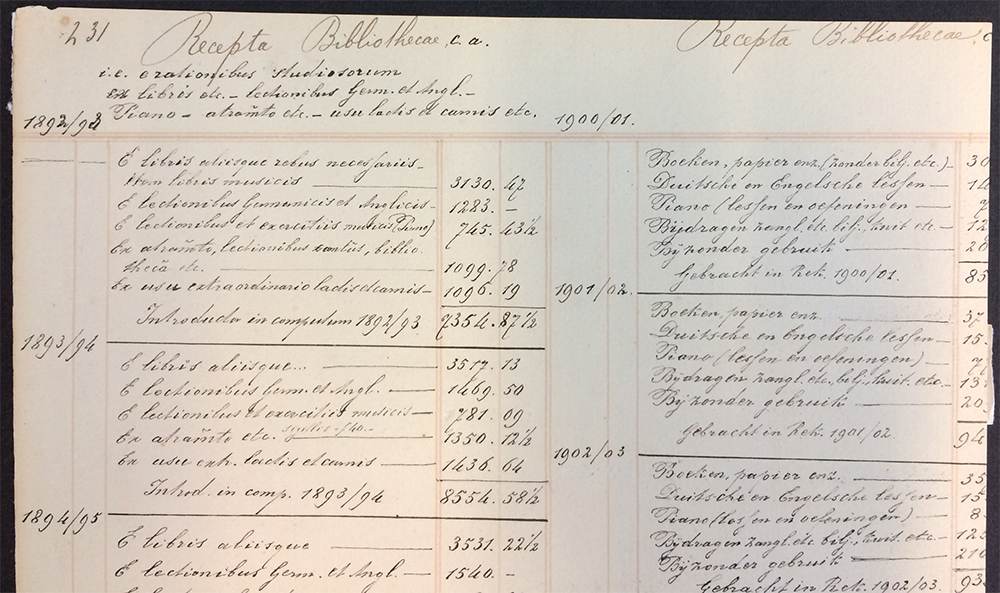 231
Recepta Bibliothecae, c. a.
i.e. e rationibus studiosorum
ex libris etc. - lectionibus Germ. et Angl. -
Piano - atram̃to etc. - usu lactis et carnis etc.
1892/93
E libris aliisque rebus necessariis -
Item libris musicis 3130. 47
E lectionibus Germanicis et Anglicis - 1283. -
E lectionibus et exercitiis musicis (Piano) 745. 43½
Ex atram̃to, lectionibus cantûs, biblio
thecâ etc. 1099. 78
Ex usu extraordinario lactis et carnis - 1096. 19
Introducta in computum 1892/93 7354. 87½
1893/94
E libris aliisque... 3517. 13
E lectionibus Germ. et Angl. 1469. 50
E lectionibus et exercitiis musicis 781. 09
Ex atram̃to etc. 1350. 12½
Ex usu extr. lactis et carnis 1436. 64
Introd. in comp. 1893/94 8554. 58½
1894/95
E libris aliisque 3531. 22½
E lectionibus Germ. et Angl. 1540. -
Recepta Bibliothecae, c
1900/01.
Boeken, papier enz. (zonder bilj. etc.) - 30
Duitsche en Engelsche lessen - 14
Piano (lessen en oefeningen - 7
Bijdragen zangl. etc. bilj., kuit etc. - 12
Bijzonder gebruik 20
Gebracht in Rek. 1900/01. 85
1901/02.
Boeken, papier enz. 37
Duitsche en Engelsche lessen - 15
Piano (lessen en oefeningen) - 7
Bijdragen zangl. etc., bilj., kuit. etc. - 13
Bijzonder gebruik 20
Gebracht in Rek. 1901/02. 94
1902/03
Boeken, papier enz. 35
Duitsche en Engelsche lessen - 15
Piano (lessen en oefeningen) 8
Bijdragen zangl. etc. bilj., kuit. etc. - 125
Bijzonder gebruik 210
Gebracht in Rek. 1902/03. 93